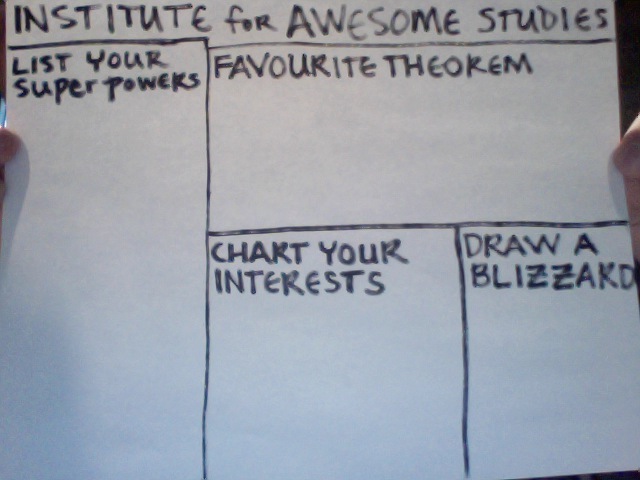 INSTITUTE for AWESOME STUDIES
LIST YOUR
super powers
FAVOURITE THEOREM
CHART YOUR
INTERESTS
DRAW A
BLIZZARD